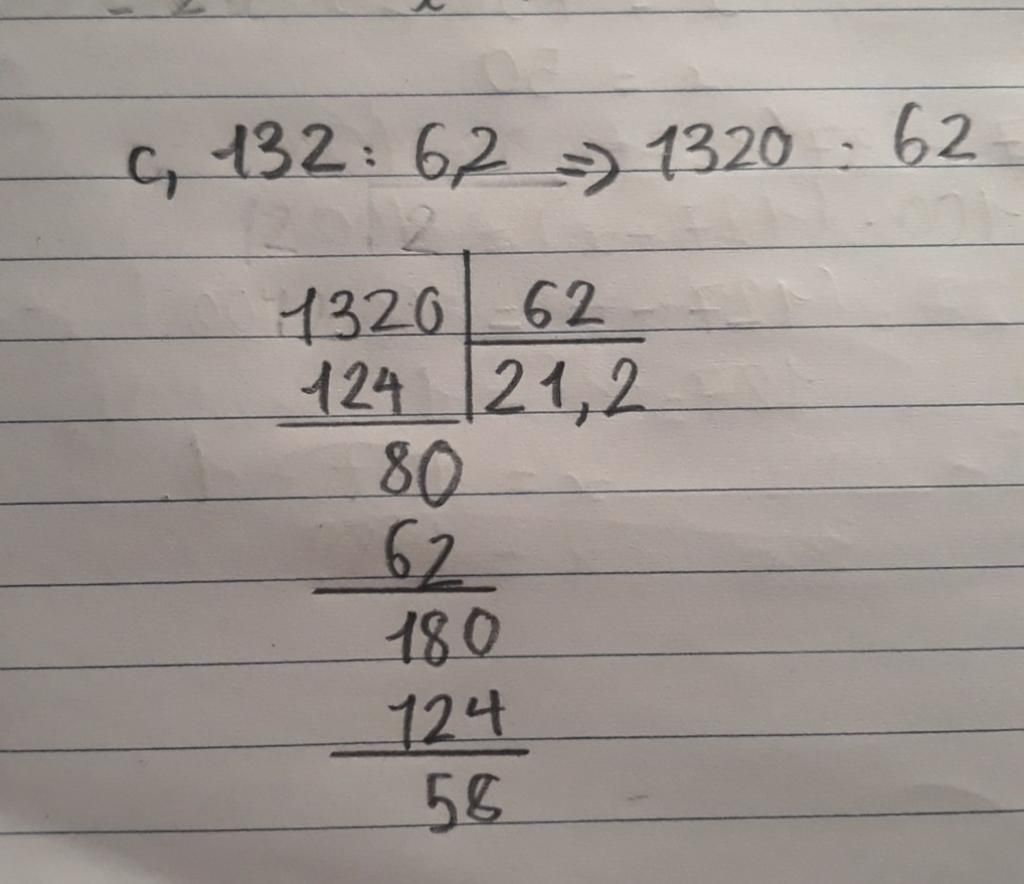 c, 132 : 6,2 => 1320 : 62
1320 | 62
124 | 21,2
80
62
180
124
58